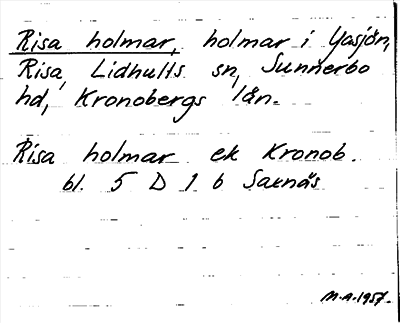 Risa holmar, holmar i Yasjön,
Risa, Lidhults sn, Sunnerbo
hd, Kronobergs län.
Risa holmar ek Kronob.
bl. 5 D 1 b Saxnäs
M.A. 1957.